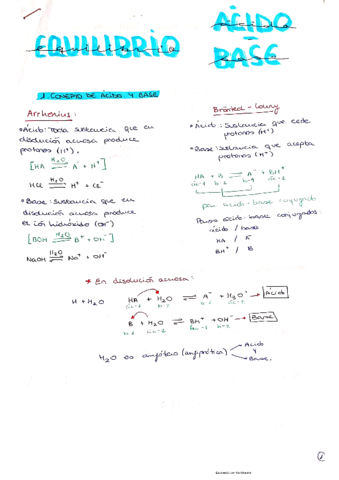 EQUILIBRIO
ÁCIDO
-
BASE
1. CONCEPTO DE ÁCIDO Y BASE
Arrhenius:
* Ácido: Toda sustancia que en
disolución acuosa produce
protones (H⁺).
[HA ⇌ A⁻ + H⁺]
H₂O
HCl ⇌ H⁺ + Cl⁻
H₂O
* Base: Sustancia que en
disolución acuosa produce
el ión hidróxido (OH⁻)
[BOH ⇌ B⁺ + OH⁻]
H₂O
NaOH ⇌ Na⁺ + OH⁻
H₂O
Brönsted - Lowry
* Ácido: Sustancia que cede
protones (H⁺)
* Base: Sustancia que acepta
protones (H⁺)
HA + B ⇌ A⁻ + BH⁺
ác-1 b-2 b-1 ác-2
par ácido-base conjugado
Pares ácido-base conjugados
ácido / base
HA / A⁻
BH⁺ / B
* En disolución acuosa:
H + H₂O
HA + H₂O ⇌ A⁻ + H₃O⁺ → Ácido
ác-1 b-2 b-1 ác-2
B + H₂O ⇌ BH⁺ + OH⁻ → Base
b-1 ác-2 ác-1 b-2
H₂O es anfótero (anfiprótica)
Ácido
y
Base.
1